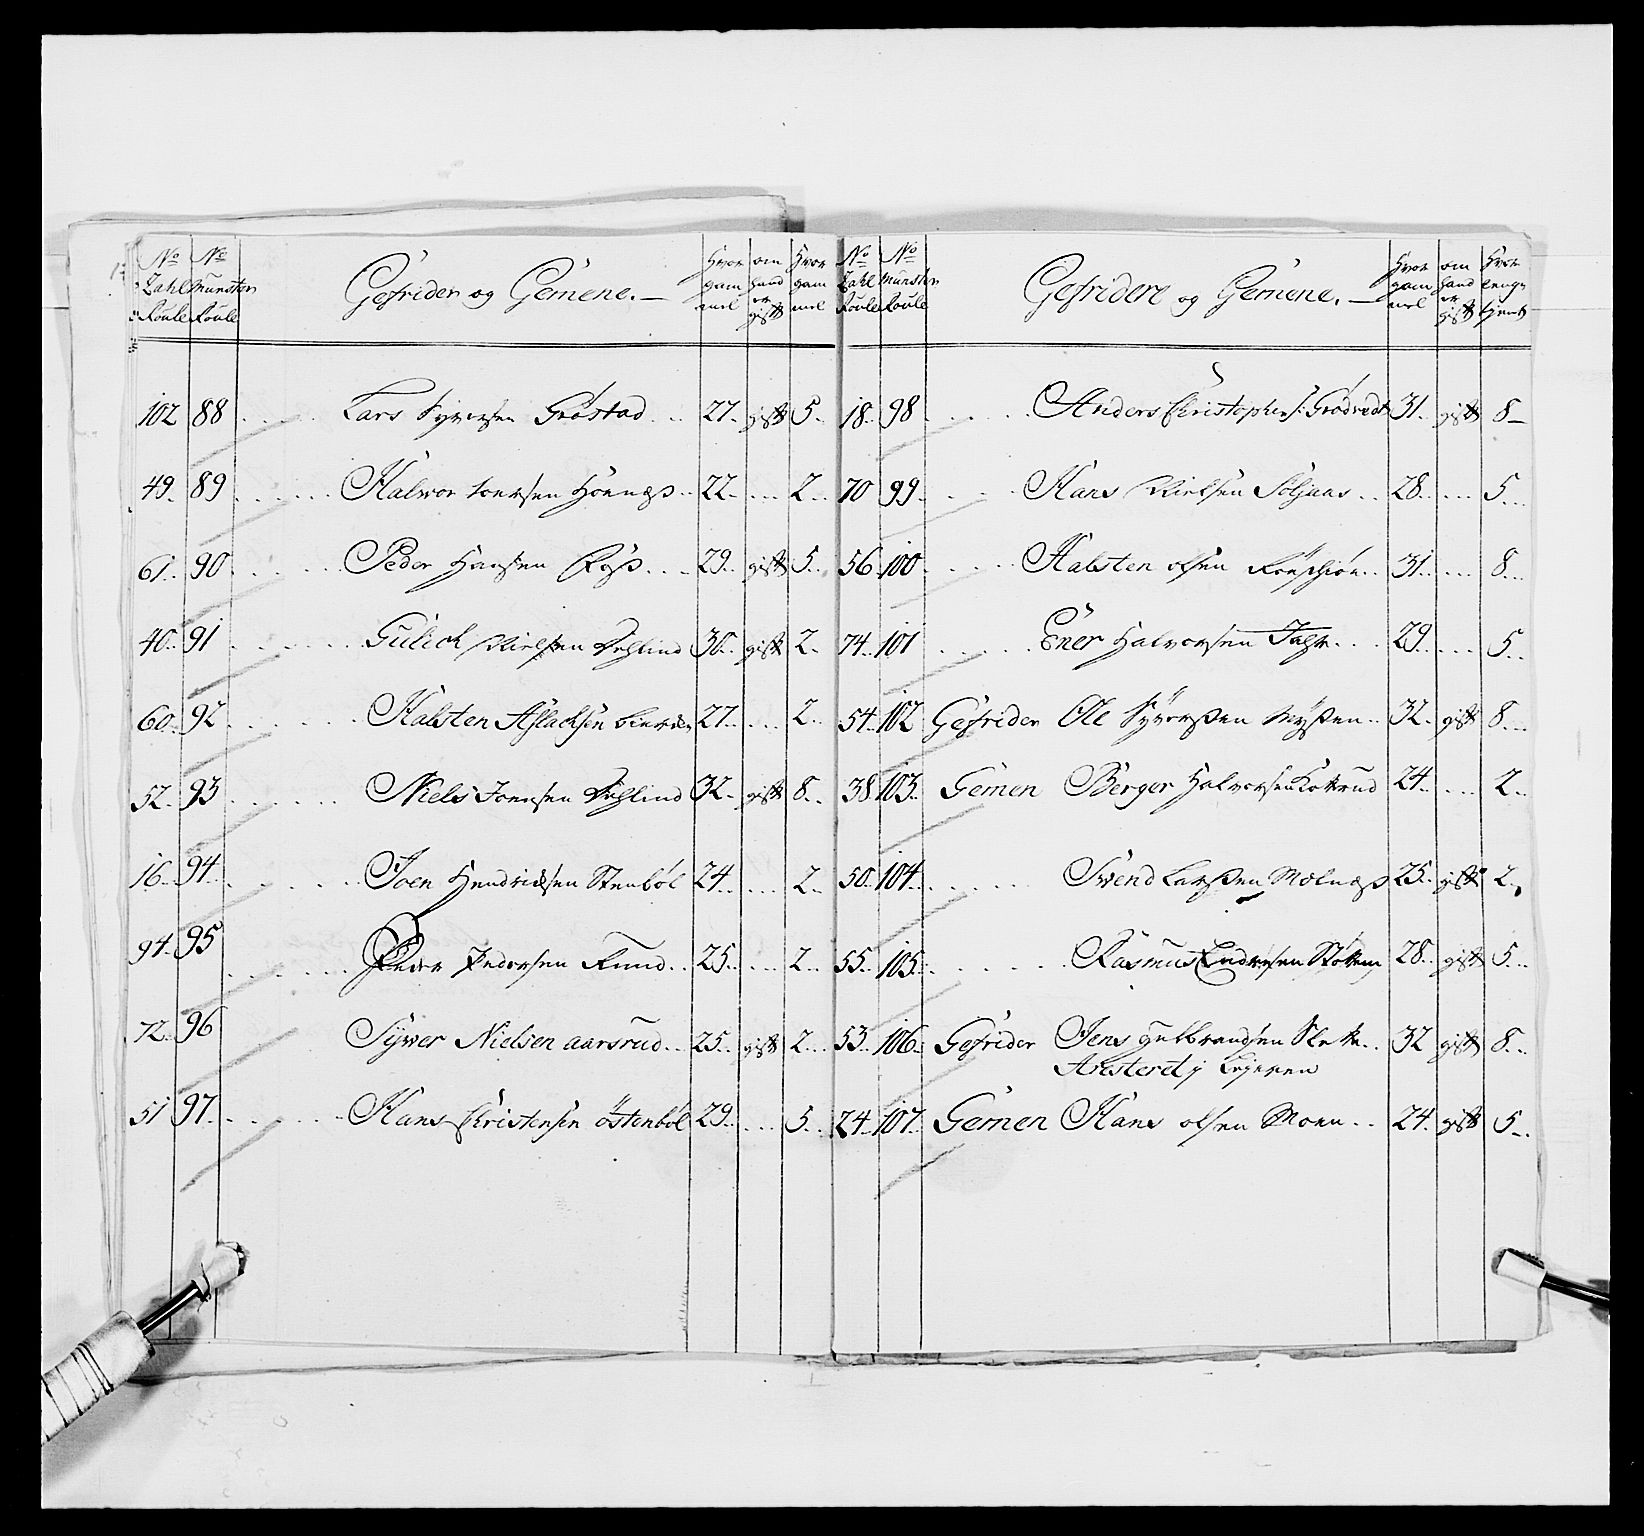 No Zahl Roule No munster Roule Gefrider og Gemene. Hvor gam mel om hand er gift Hvor gam mel
102 88 Lars Syversen Gröstad 27 gift 5
49 89 Halvor 22 2
61 90 Peder Hansen 29 gift 5
40 91 Gulich Nielsen 30 gift 2
60 92 Halsten Aslachsen 27 2
52 93 Niels Joensen 32 gift 8
16 94 Joen Hendrichsen Stenböl 24 2
94 95 Peder Pedersen Rund 25 2
72 96 Syver Nielsen aarsrud 25 gift 2
51 97 Hans Christensen östenböl 29 5
No Zahl Roule No munster Roule Gefridere og Gemene. Hvor gam mel om hand er gift Hvor lenge tjent
18 98 Anders Christophers: 31 gift 8
70 99 Hans Nielsen 28 5
56 100 Halsten olsen 31 8
74 101 Ener Halvorsen 29 5
54 102 Gefrider Ole Syverßen Myßen 32 gift 8
38 103 Gemen Berger Halvorsen 24 2
50 104 Svend Larßen Molneß 25 gift 2
55 105 Rasmus Endresen 28 gift 5
53 106 Gefrider Jens gulbrandsen 32 gift 8
Aresteret j Lejeren
24 107 Gemen Hans olsen Moen 24 gift 5